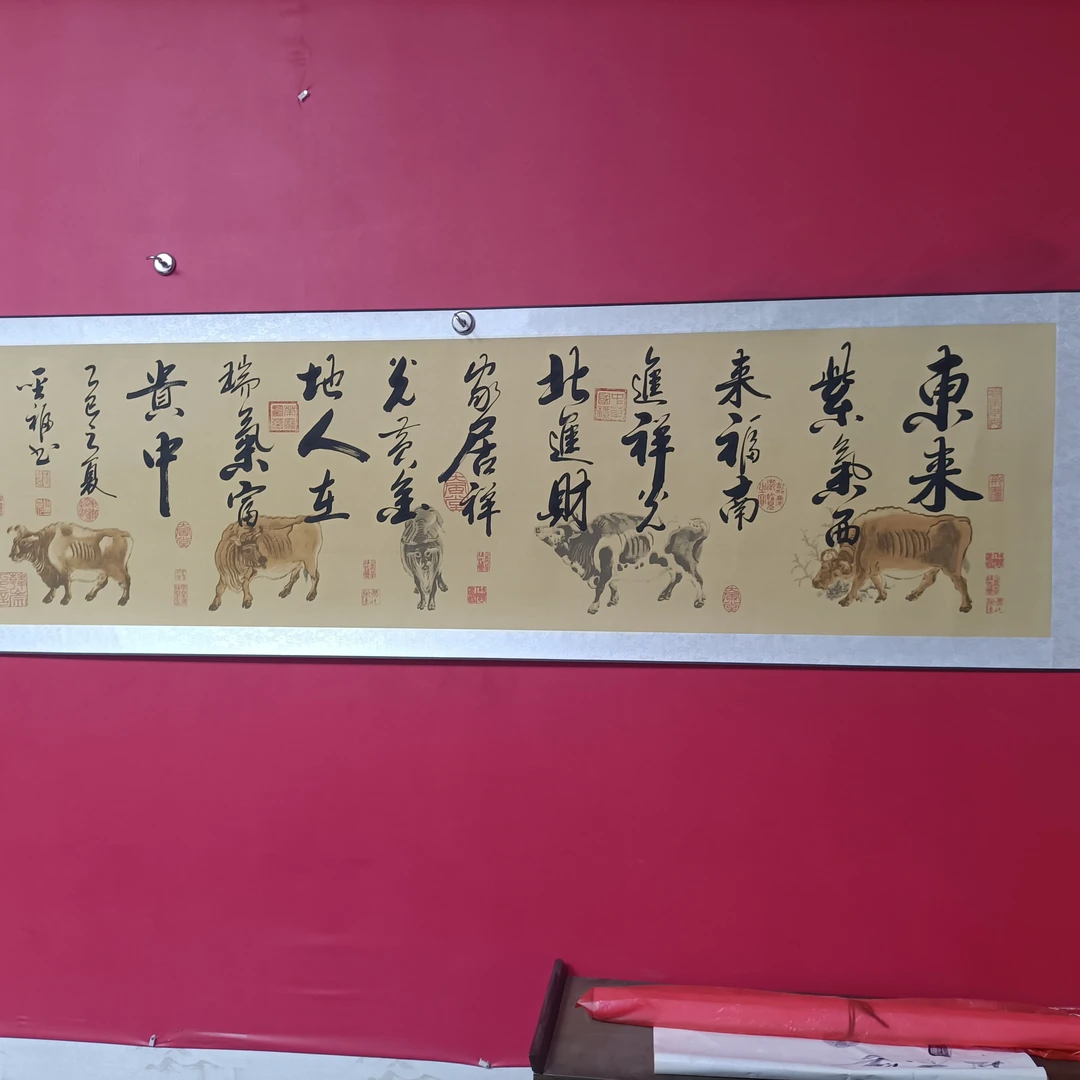 東来
紫氣西
来福南
進祥光
北進財
家居祥
光黄金
地人在
瑞氣富
貴中
乙巳之夏
福书